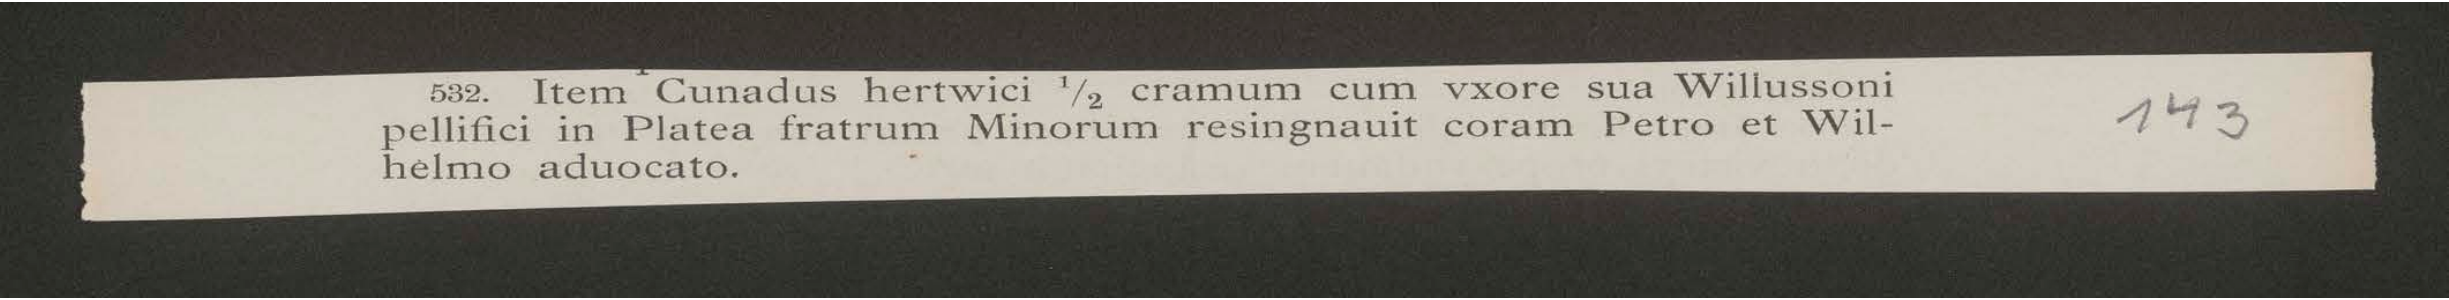 532. Item Cunadus hertwici 1/2 cramum cum vxore sua Willussoni
pellifici in Platea fratrum Minorum resingnauit coram Petro et Wil-
helmo aduocato.
143